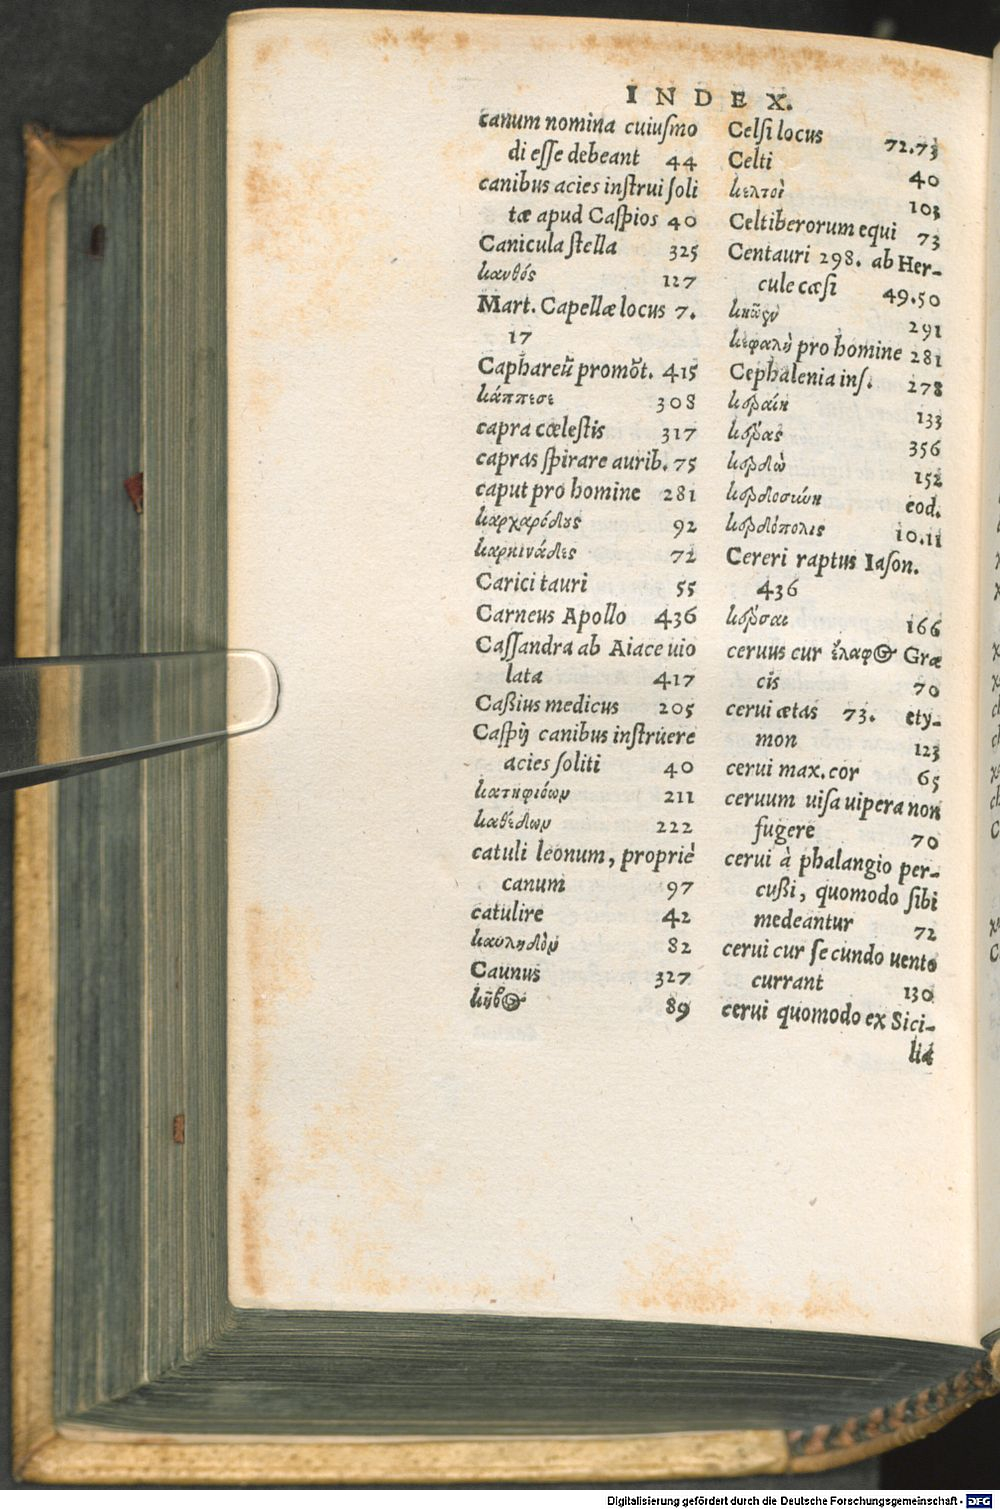 INDEX.
canum nomina cuiuſmo
di eſſe debeant 44
canibus acies inſtrui ſoli
tæ apud Caſpios 40
Canicula ſtella 325
κανθός 127
Mart. Capellæ locus 7.
17
Caphareũ promõt. 415
κάππεσε 308
capra cœleſtis 317
capras ſpirare aurib. 75
caput pro homine 281
καρχαρόδους 92
καρκινάδες 72
Carici tauri 55
Carneus Apollo 436
Caſſandra ab Aiace uio
lata 417
Caßius medicus 205
Caſpij canibus inſtruere
acies ſoliti 40
κατηφιόων 211
καθέδων 222
catuli leonum, propriè
canum 97
catulire 42
καυληδὸν 82
Caunus 327
κῆβος 89
Celſi locus 72.73
Celti 40
κελτοὶ 103
Celtiberorum equi 73
Centauri 298. ab Her-
cule cæſi 49.50
291
κεφαλὴ pro homine 281
Cephalenia inſ. 278
133
κέρας 356
κερδὼ 152
κερδοσύνη eod.
10.11
Cereri raptus Iaſon.
436
κέρσαι 166
ceruus cur ἔλαφος Græ
cis 70
cerui ætas 73. ety-
mon 123
cerui max. cor 65
ceruum uiſa uipera non
fugere 70
cerui à phalangio per-
cußi, quomodo ſibi
medeantur 72
cerui cur ſecundo uento
currant 130
cerui quomodo ex Sici-
lia
Digitalisierung gefördert durch die Deutsche Forschungsgemeinschaft - DFG